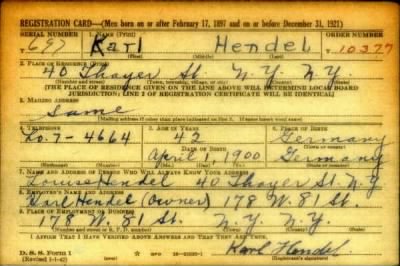 REGISTRATION CARD—(Men born on or after February 17, 1897 and on or before December 31, 1921)
SERIAL NUMBER 1. NAME (Print) ORDER NUMBER
Karl Hendel 10377
(First) (Middle) (Last)
2. PLACE OF RESIDENCE (Print)
40 Thayer St. N.Y. N.Y.
(Number and street) (Town, township, village, or city) (County) (State)
[THE PLACE OF RESIDENCE GIVEN ON THE LINE ABOVE WILL DETERMINE LOCAL BOARD
JURISDICTION; LINE 2 OF REGISTRATION CERTIFICATE WILL BE IDENTICAL]
3. MAILING ADDRESS
Same
[Mailing address if other than place indicated on line 2. If same insert word same]
4. TELEPHONE 5. AGE IN YEARS 6. PLACE OF BIRTH
Lo. 7-4664 42 Germany
DATE OF BIRTH
April 1, 1900 Germany
(Exchange) (Number) (Mo.) (Day) (Yr.) (State or country)
7. NAME AND ADDRESS OF PERSON WHO WILL ALWAYS KNOW YOUR ADDRESS
Louise Hendel 40 Thayer St. N.Y.
8. EMPLOYER'S NAME AND ADDRESS
Karl Hendel (owner) 178 W. 81 St.
9. PLACE OF EMPLOYMENT OR BUSINESS
178 W. 81 St. N.Y. N.Y.
(Number and street or R. F. D. number) (Town) (County) (State)
I AFFIRM THAT I HAVE VERIFIED ABOVE ANSWERS AND THAT THEY ARE TRUE.
D. S. S. Form 1
(Revised 1-1-42) Karl Hendel